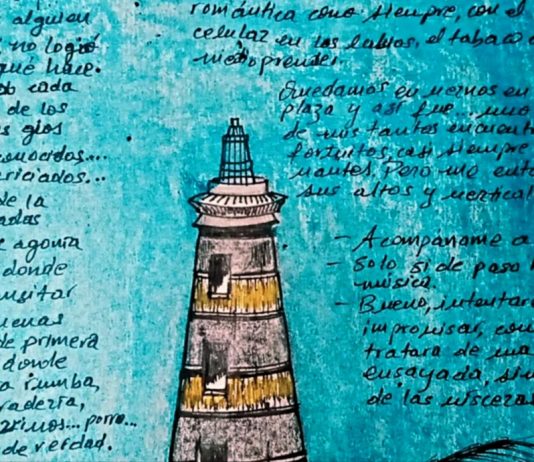 alguien
no logró
qué hace.
cada
de los
gios
conocidos...
riciados...
de la
adas
agonía
donde
sitar
uenas
de primera
donde
a rumba,
radería,
arinos... porro...
de verdad.
romántica como siempre, con el
celular en los labios, el tabaco
medio prender.
Quedamos en vernos en
plaza y así fue... uno
de mis tantos encuent
fortuitos, casi siempre
nantes. Pero no
sus altos y vertical
- Acompáñame a
- Solo si de paso
música.
- Bueno, intentar
improvisar, com
tratara de una
ensayada, si
de las vísceras